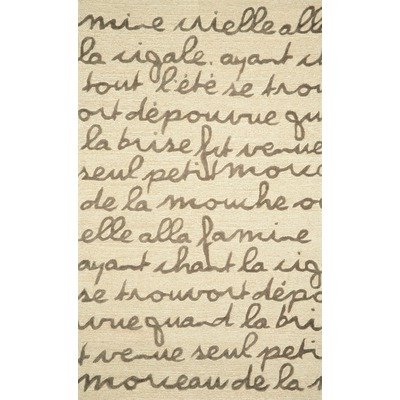 mine crielle alle
la cigale. ayant ch
tout l'été se trou
ort dépouvue qu
la brise fit venue
seul petit morceau
de la mouche ou
elle alla famine
ayant chant la cig
se trouvort dépo
vue quand la bri
t venue seul peti
morceau de la m